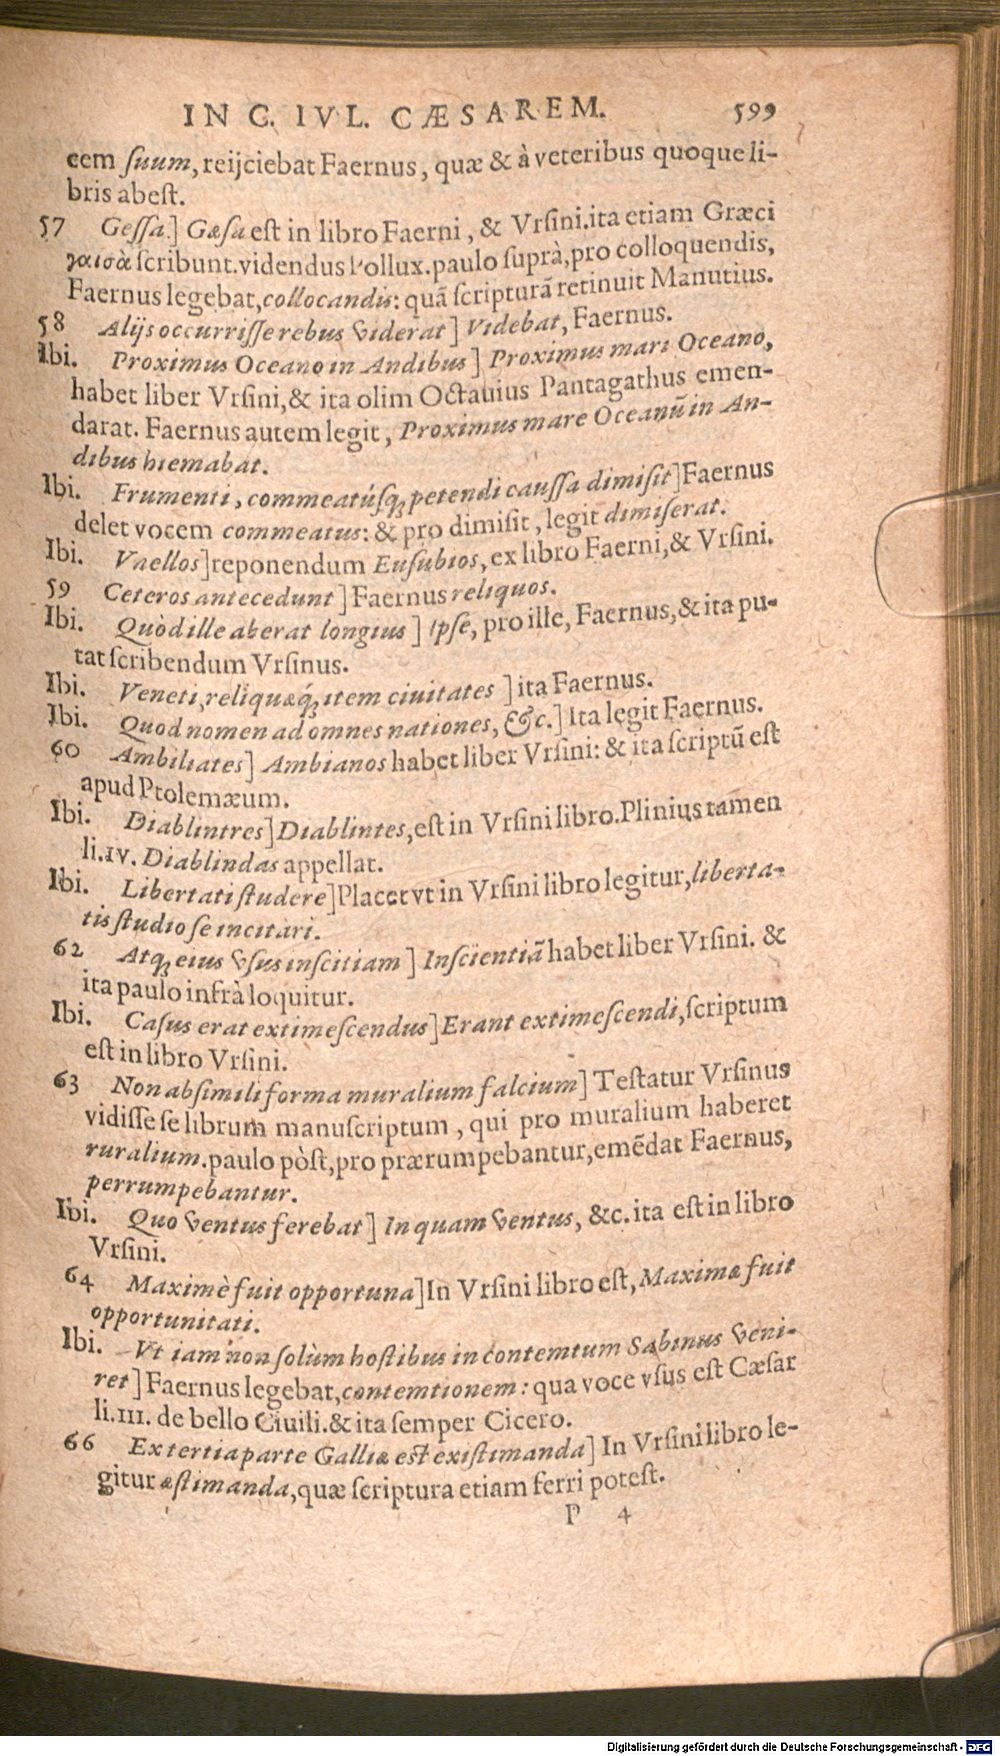 IN C. IVL. CÆSAREM. 599
cem ſuum, reijciebat Faernus, quæ & à veteribus quoque li-
bris abeſt.
57 Geſſa.] Gæſa eſt in libro Faerni, & Vrſini.ita etiam Græci
γαισὰ ſcribunt.videndus Pollux.paulo ſuprà,pro colloquendis,
Faernus legebat,collocandis: quã ſcripturã retinuit Manutius.
58 Alijs occurriſſe rebus viderat] Videbat, Faernus.
Ibi. Proximus Oceano in Andibus] Proximus mari Oceano,
habet liber Vrſini,& ita olim Octauius Pantagathus emen-
darat. Faernus autem legit, Proximus mare Oceanũ in An-
dibus hiemabat.
Ibi. Frumenti, commeatúſq; petendi cauſſa dimiſit]Faernus
delet vocem commeatus: & pro dimiſit, legit dimiſerat.
Ibi. Vnellos]reponendum Euſubios, ex libro Faerni,& Vrſini.
59 Ceteros antecedunt] Faernus reliquos.
Ibi. Quòd ille aberat longius] Ipſe, pro ille, Faernus,& ita pu-
tat ſcribendum Vrſinus.
Ibi. Veneti,reliquæq́; item ciuitates] ita Faernus.
Ibi. Quod nomen ad omnes nationes, &c.] Ita legit Faernus.
60 Ambiliates] Ambianos habet liber Vrſini: & ita ſcriptũ eſt
apud Ptolemæum.
Ibi. Diablintres]Diablintes,eſt in Vrſini libro.Plinius tamen
li.IV. Diablindas appellat.
Ibi. Libertati ſtudere]Placet vt in Vrſini libro legitur,liberta-
tis ſtudio ſe incitari.
62 Atq; eius vſus inſcitiam] Inſcientiã habet liber Vrſini. &
ita paulo infrà loquitur.
Ibi. Caſus erat extimeſcendus]Erant extimeſcendi,ſcriptum
eſt in libro Vrſini.
63 Non abſimili forma muralium falcium] Teſtatur Vrſinus
vidiſſe ſe librum manuſcriptum, qui pro muralium haberet
ruralium.paulo pòſt,pro prærumpebantur,emẽdat Faernus,
perrumpebantur.
Ibi. Quo ventus ferebat] In quam ventus, &c. ita eſt in libro
Vrſini.
64 Maximè fuit opportuna]In Vrſini libro eſt,Maximæ fuit
opportunitati.
Ibi. Vt iam non ſolùm hoſtibus in contemtum Sabinus veni-
ret] Faernus legebat,contemtionem: qua voce vſus eſt Cæſar
li.III. de bello Ciuili.& ita ſemper Cicero.
66 Ex tertia parte Galliæ eſt exiſtimanda] In Vrſini libro le-
gitur æſtimanda,quæ ſcriptura etiam ferri poteſt.
P 4
Digitalisierung gefördert durch die Deutsche Forschungsgemeinschaft - DFG